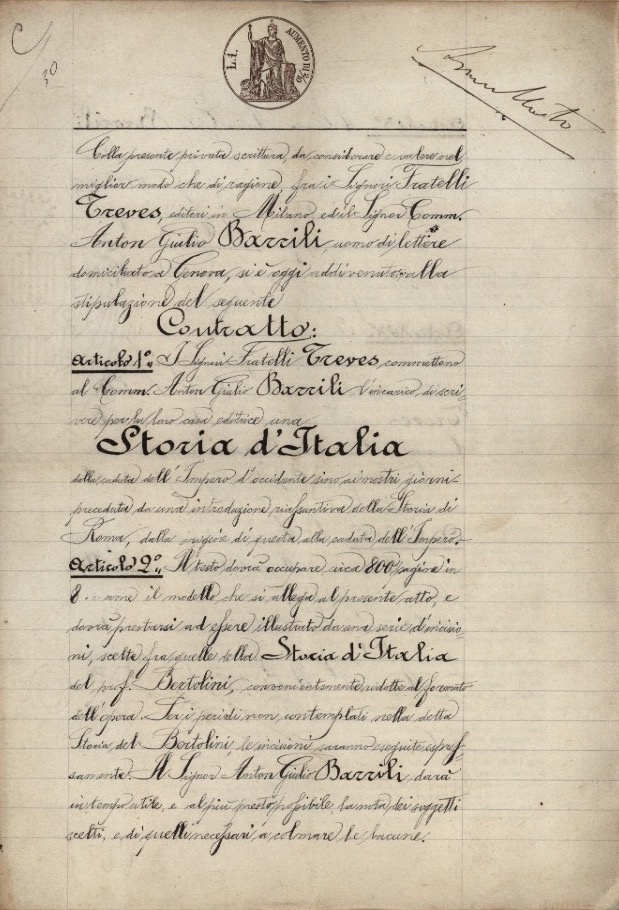 30
L.i. AUMENTO DI 2/10
Annullato
Colla presente privata scrittura, da considerare e valere nel
miglior modo che di ragione, fra i Signori Fratelli
Treves, editori in Milano, ed il Signor Comm.
Anton Giulio Barrili uomo di lettere
domiciliato a Genova, si è oggi addivenuto alla
stipulazione del seguente
Contratto:
Articolo 1º. I Signori Fratelli Treves, commettono
al Comm. Anton Giulio Barrili l'incarico di scri-
vere per la loro casa editrice una
Storia d'Italia
dalla caduta dell'Impero d'occidente sino ai nostri giorni
preceduta da una introduzione riassuntiva della Storia di
Roma, dalle origini di questa alla caduta dell'Impero.
Articolo 2º. Il testo dovrà occupare circa 800 pagine in
8. come il modello che si allega al presente atto, e
dovrà prestarsi ad essere illustrato da una serie d'incisio-
ni, scelte fra quelle della Storia d'Italia
del prof. Bertolini, convenientemente ridotte al formato
dell'opera. Per i periodi non contemplati nella detta
Storia del Bertolini, le incisioni saranno eseguite espres-
samente. Il Signor Anton Giulio Barrili darà
in tempo utile, e al più presto possibile, la nota dei soggetti
scelti, e di quelli necessari a colmare le lacune.